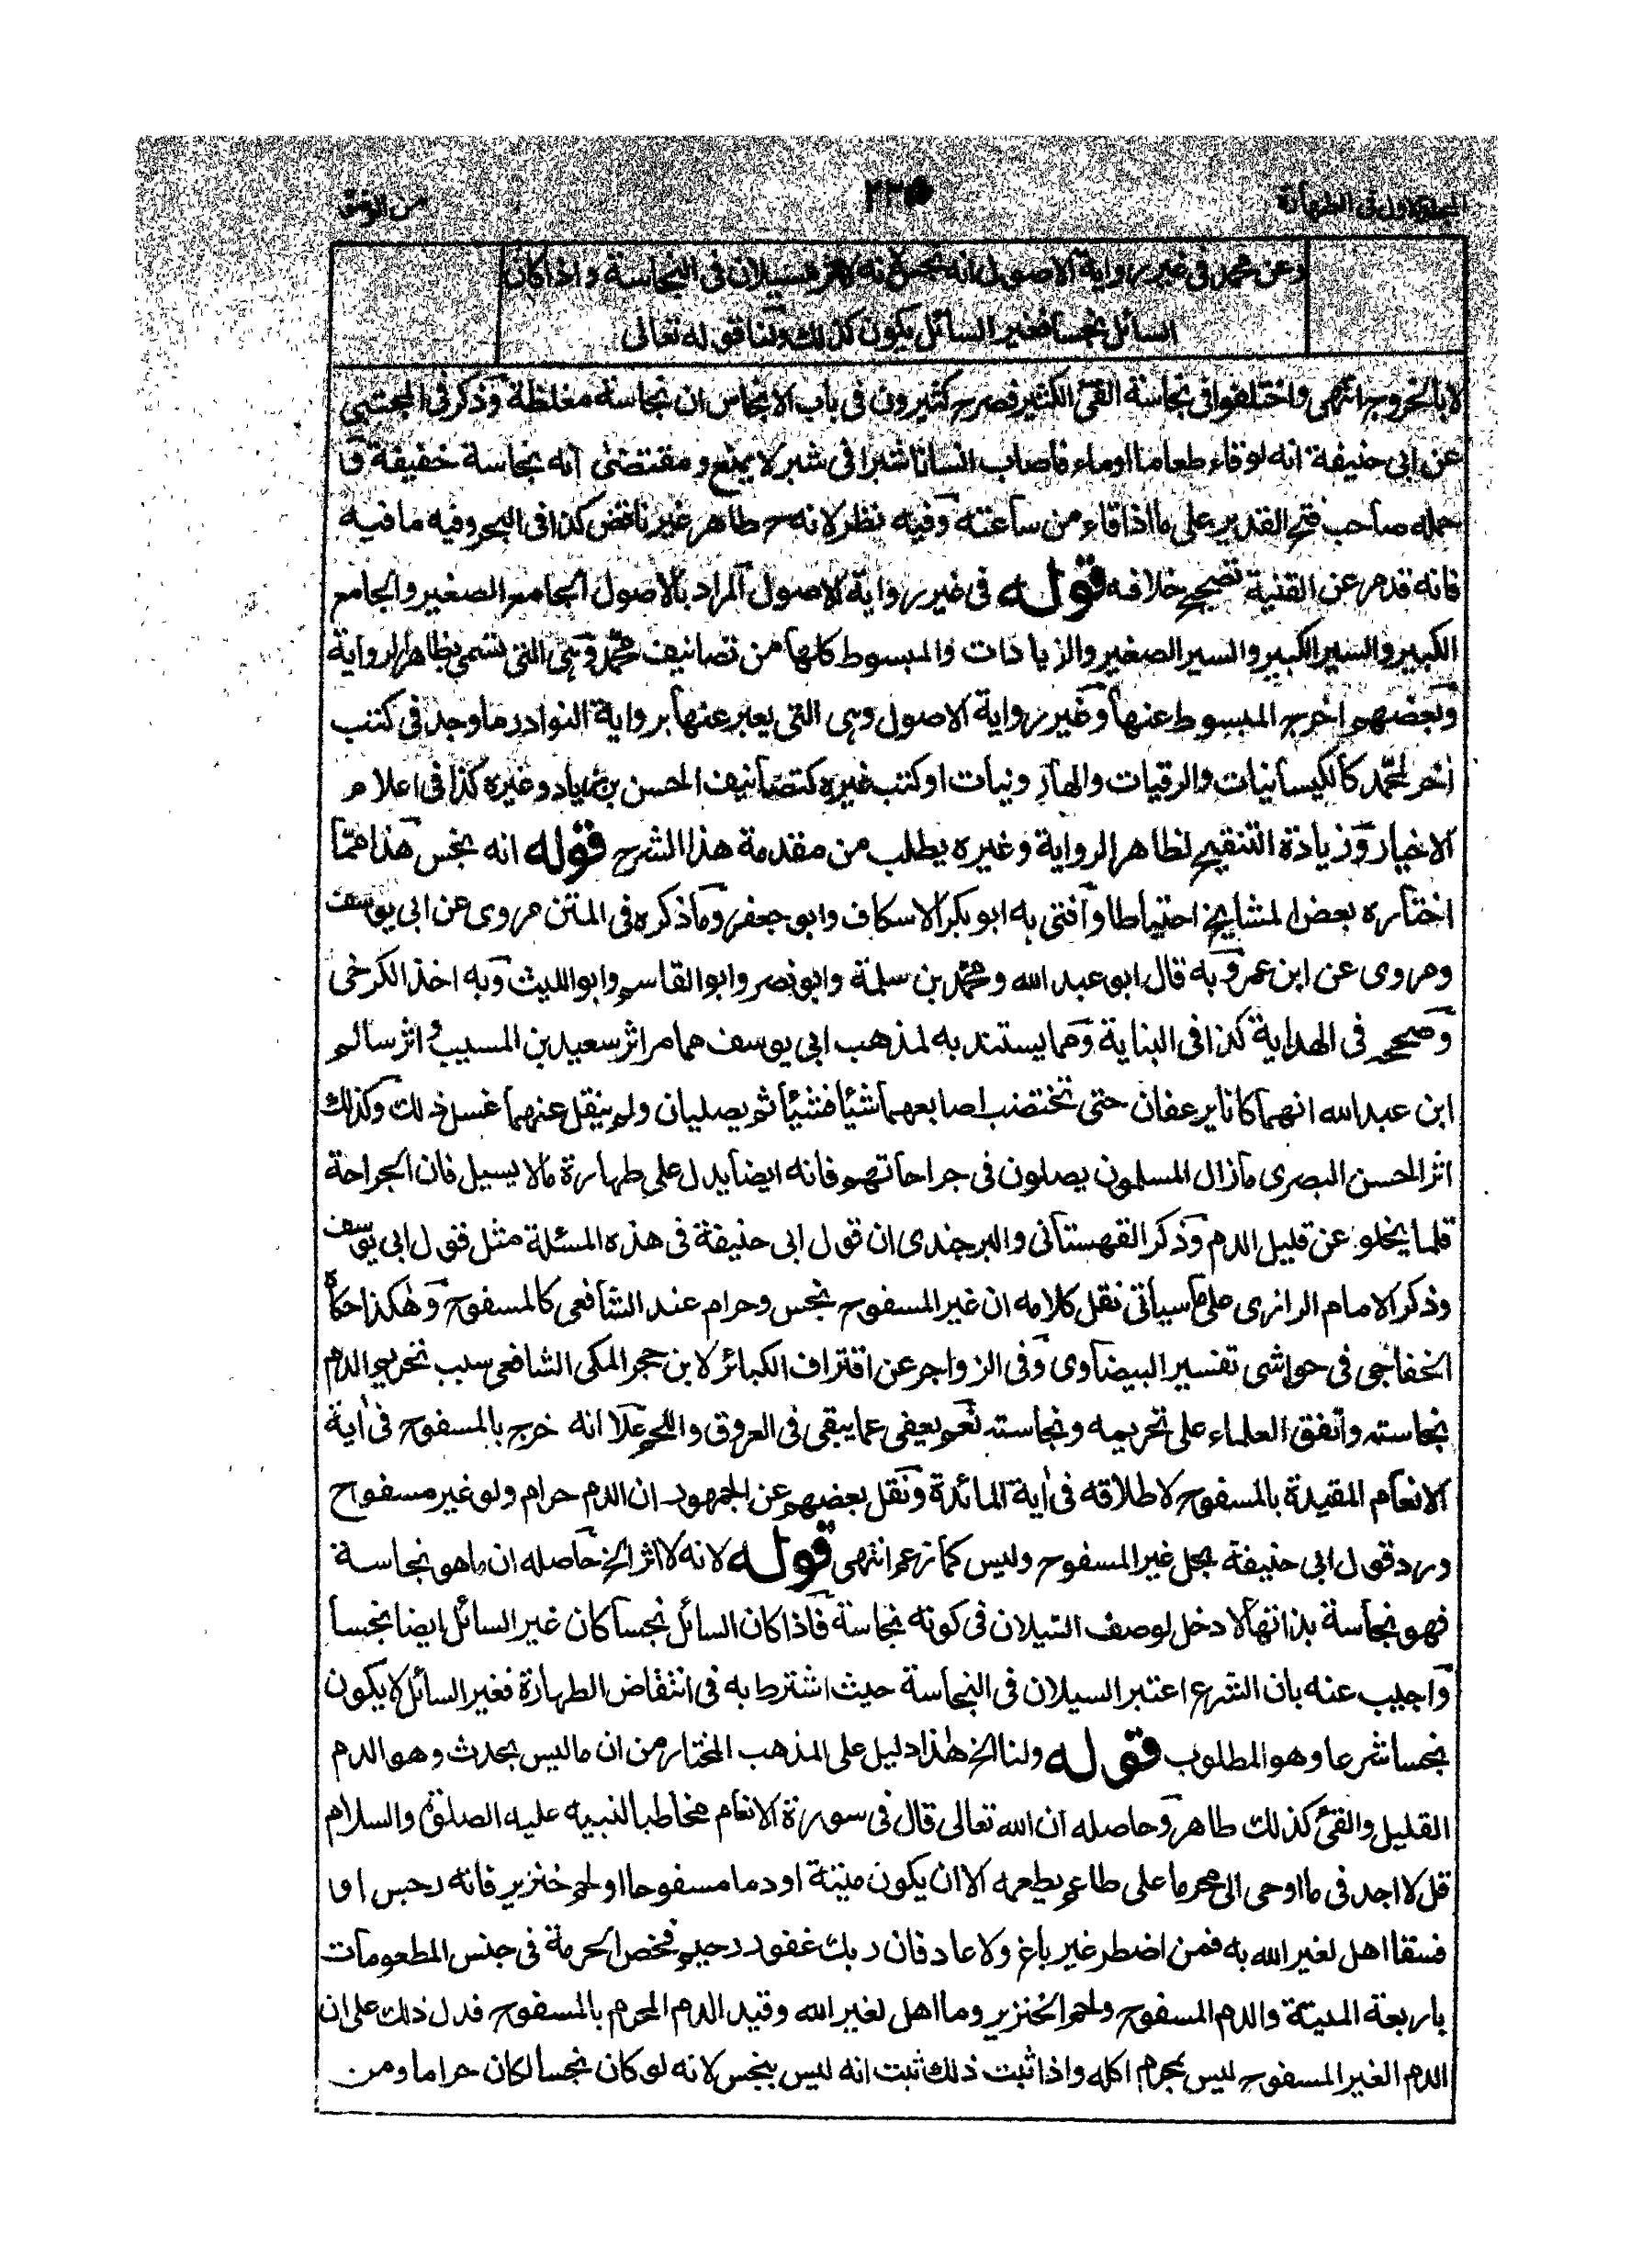 المجلد الاول فى الطهارة
من الوضوء
وعن محمد فى غير رواية الاصول انه نجس لانه لا اثر للسيلان فى النجاسة واذا كان
السائل نجسا فغير السائل يكون كذلك ولنا قوله تعالى
لا بالخروج انتهى واختلفوا فى نجاسة القئ الكثير فصرح كثيرون فى باب الانجاس ان نجاسة مغلظة وذكر فى المجتبى
عن ابى حنيفة انه لو قاء طعاما او ماء فاصاب انسانا شبرا فى شبر لا يمنع ومقتضى انه نجاسة خفيفة و
حمله صاحب فتح القدير على ما اذا قاء من ساعته وفيه نظر لانه ح طاهر غير ناقض كذا فى البحر وفيه ما فيه
فانه قدم عن القنية تصحيح خلافه قوله فى غير رواية الاصول المراد بالاصول الجامع الصغير والجامع
الكبير والسير الكبير والسير الصغير والزيادات والمبسوط كلها من تصانيف محمد وهى التى تسمى بظاهر الرواية
وبعضهم اخرج المبسوط عنها وغير رواية الاصول وهى التى يعبر عنها برواية النوادر ما وجد فى كتب
اخر لمحمد كالكيسانيات والرقيات والهارونيات او كتب غيره كتصانيف الحسن بن زياد وغيره كذا فى اعلام
الاخيار وزيادة التنقيح لظاهر الرواية وغيره يطلب من مقدمة هذا الشرح قوله انه نجس هذا مما
اختاره بعض المشايخ احتياطا وافتى به ابو بكر الاسكاف وابو جعفر وما ذكره فى المتن مروى عن ابى يوسف
ومروى عن ابن عمر وبه قال ابو عبد الله ومحمد بن سلمة وابو نصر وابو القاسم وابو الليث وبه اخذ الكرخى
وصحح فى الهداية كذا فى البناية ومما يستند به لمذهب ابى يوسف مما مر اثر سعيد بن المسيب واثر سالم
ابن عبد الله انهما كانا يرعفان حتى تختضب اصابعهما شيئا فشيئا ثم يصليان ولم ينقل عنهما غسل ذلك وكذلك
اثر الحسن البصرى ما زال المسلمون يصلون فى جراحاتهم فانه ايضا يدل على طهارة ما لا يسيل فان الجراحة
قلما يخلو عن قليل الدم وذكر القهستانى والبرجندى ان قول ابى حنيفة فى هذه المسئلة مثل قول ابى يوسف
وذكر الامام الرازى على ما سياتى نقل كلامه ان غير المسفوح نجس وحرام عند الشافعى كالمسفوح وهكذا حكاه
الخفاجى فى حواشى تفسير البيضاوى وفى الزواجر عن اقتراف الكبائر لابن حجر المكى الشافعى سبب تحريم الدم
نجاسته واتفق العلماء على تحريمه ونجاسته نعم يعفى عما يبقى فى العروق واللحم علا انه خرج بالمسفوح فى أية
الانعام المقيدة بالمسفوح لاطلاقه فى أية المائدة ونقل بعضهم عن الجمهور ان الدم حرام ولو غير مسفوح
ورد قول ابى حنيفة بحل غير المسفوح وليس كما زعم انتهى قوله لانه لا اثر الخ حاصله ان ما هو نجاسة
فهو نجاسة بذاتها لا دخل لوصف السيلان فى كونه نجاسة فاذا كان السائل نجسا كان غير السائل ايضا نجسا
واجيب عنه بان الشرع اعتبر السيلان فى النجاسة حيث اشترط به فى انتقاض الطهارة فغير السائل لا يكون
نجسا شرعا وهو المطلوب قوله ولنا الخ هذا دليل على المذهب المختار من ان ما ليس بحدث وهو الدم
القليل والقئ كذلك طاهر وحاصله ان الله تعالى قال فى سورة الانعام مخاطبا لنبيه عليه الصلوة والسلام
قل لا اجد فى ما اوحى الى محرما على طاعم يطعمه الا ان يكون ميتة او دما مسفوحا او لحم خنزير فانه رجس او
فسقا اهل لغير الله به فمن اضطر غير باغ ولا عاد فان ربك غفور رحيم فخص الحرمة فى جنس المطعومات
باربعة الميتة والدم المسفوح ولحم الخنزير وما اهل لغير الله وقيد الدم المحرم بالمسفوح فدل ذلك على ان
الدم الغير المسفوح ليس بمحرم اكله واذا ثبت ذلك ثبت انه ليس بنجس لانه لو كان نجسا لكان حراما ومن